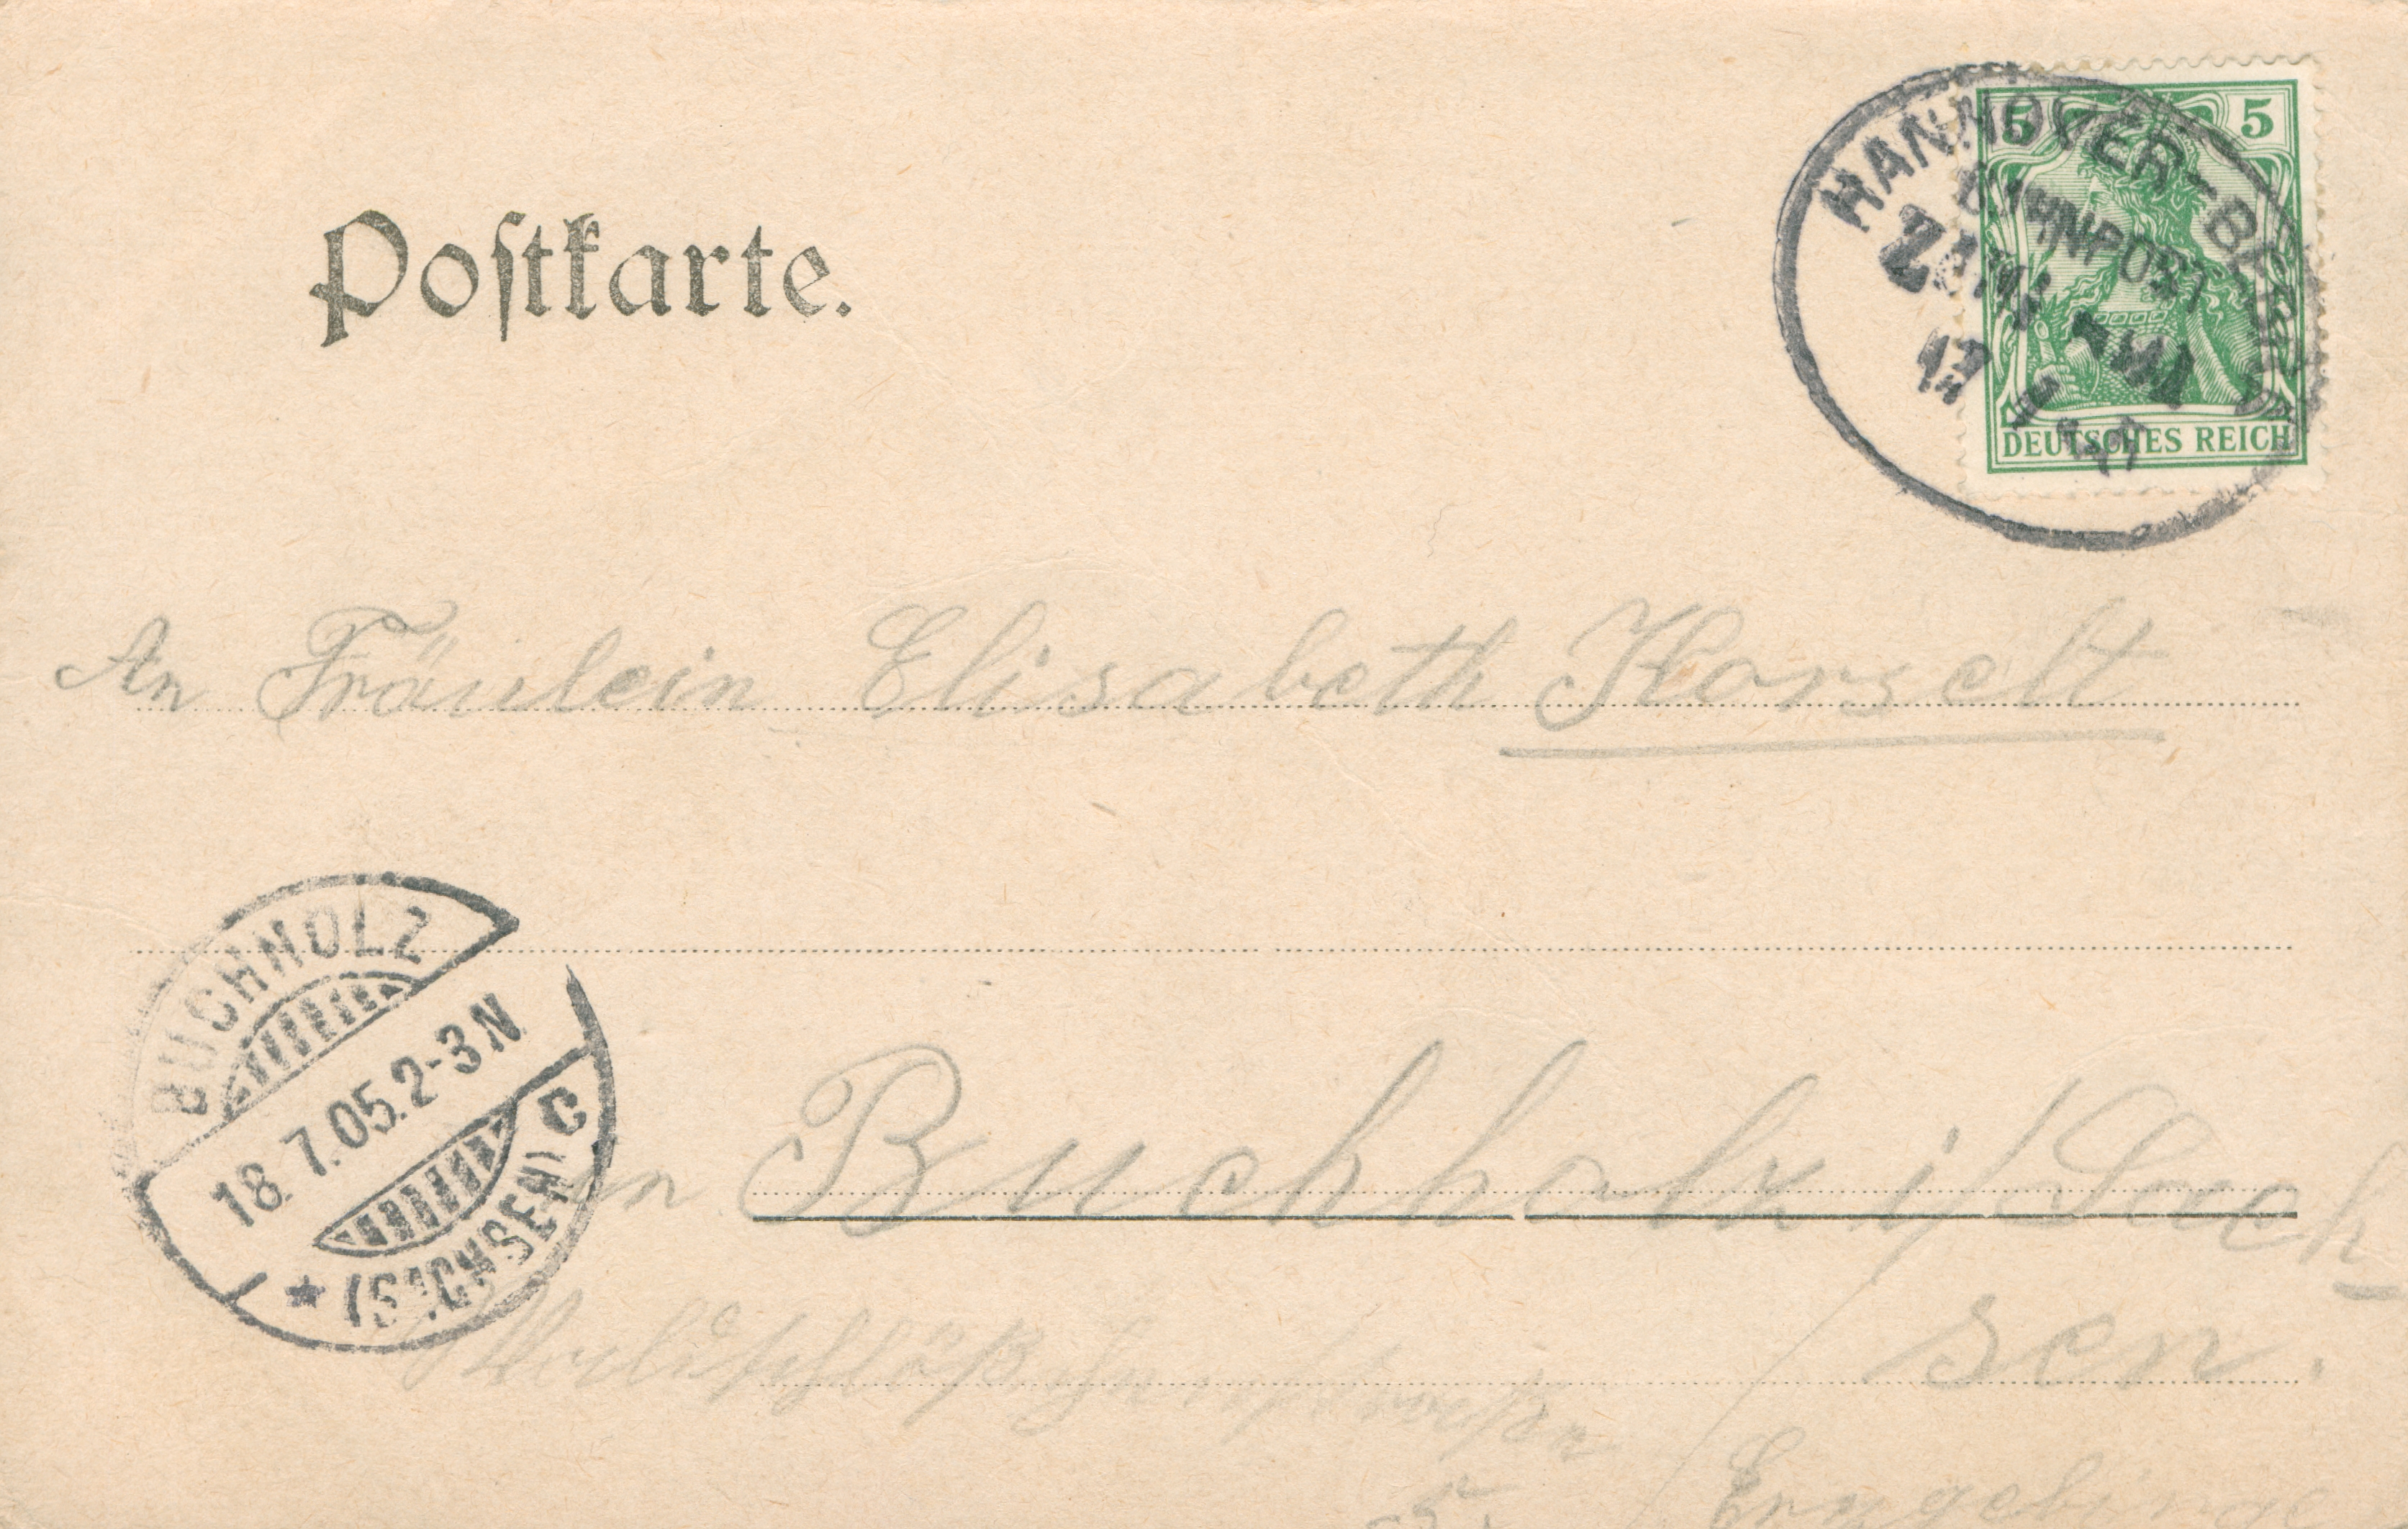 Postkarte.
5 5
HANNOVER-BERLIN
BAHNPOST
ZUG
17
DEUTSCHES REICH
An Fräulein Elisabeth Horselt
BUCHHOLZ
18.7.05.2-3N
* (SACHSEN) C
in Buchholz i/Sach-
sen.
Erzgebirge